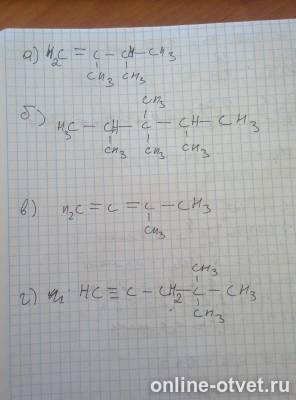 а) H₂C = C - CH - CH₃
CH₃ CH₃
CH₃
б) H₃C - CH - C - CH - CH₃
CH₃ CH₃ CH₃
в) H₂C = C = C - CH₃
CH₃
CH₃
г) HC ≡ C - CH₂ - C - CH₃
CH₃
online-otvet.ru